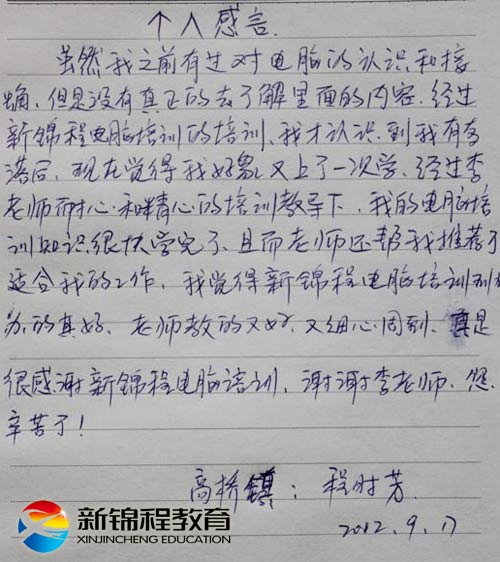 个人感言
虽然我之前有过对电脑的认识和接
触,但是没有真正的去了解里面的内容,经过
新锦程电脑培训的培训,我才认识到我有多
落后,现在觉得我好象又上了一次学,经过李
老师耐心和精心的培训教导下,我的电脑培
训知识很快学完了,且而老师还帮我推荐了
适合我的工作,我觉得新锦程电脑培训
办的真好,老师教的又好,又细心周到,真是
很感谢新锦程电脑培训,谢谢李老师,您
辛苦了!
高桥镇:程时芳
2012.9.17
新锦程教育
XINJINCHENG EDUCATION